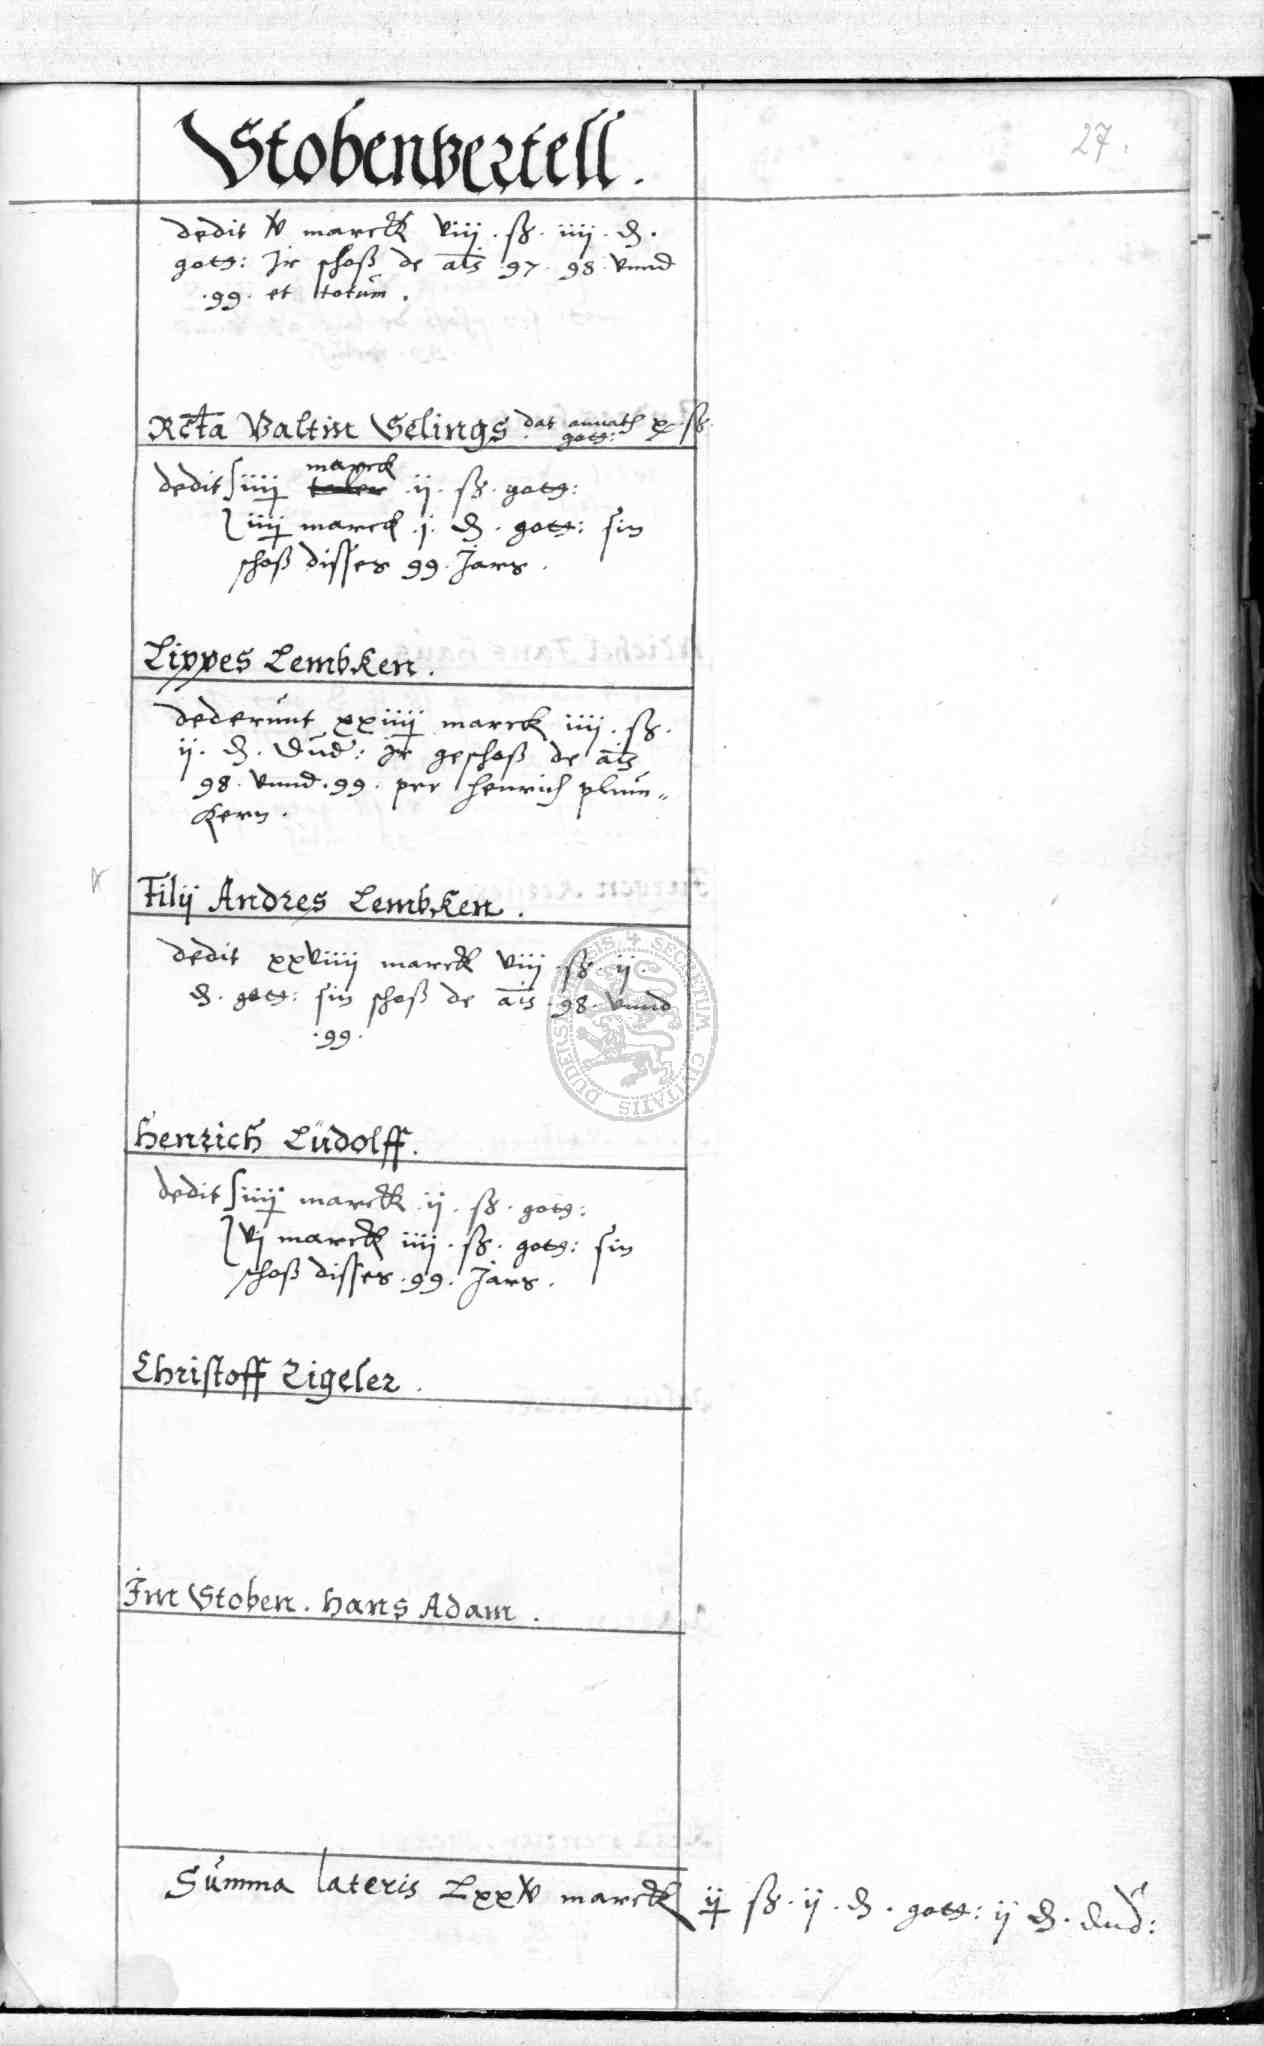 Stobenvertell.
27.
dedit v marck viij. ß. iiij. d.
gott: Ir schoß de ais .97. 98. vnnd
.99. et totum.
Rcta Valtin Selings dat annuath x ß.
gott:
marck
dedit iiij taler .ij. ß. gott:
iiij marck .j. d. gott: sin
schoß disses 99. Jars.
Lippes Lembken.
dederunt xxiiij marck iiij. ß.
ij. d. Dud: Ir geschoß de ais
98. vnnd .99. per Henrich plum-
kern.
Filij Andres Lembken.
dedit xxviiij marck viij ß ij
d. gott: sin schoß de ais .98. vnnd
.99.
SECRETUM CIVITATIS DUDERS
Henrich Ludolff.
dedit iiij marck ij. ß. gott:
vj marck iiij. ß. gott: sin
schoß disses .99. Jars.
Christoff Zigeler.
Im Stoben. Hans Adam.
Summa lateris Lxxv marck ij ß. ij. d. gott: ij d. dud: